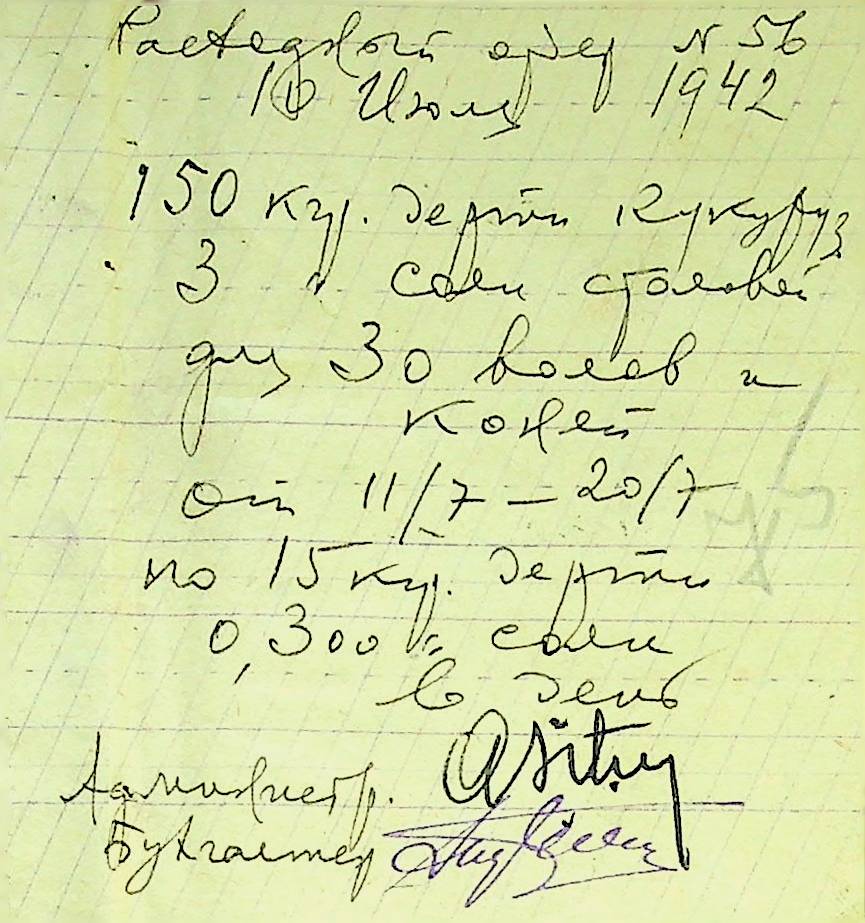 Расходный ордер N 56
10 Июля 1942
150 кгр. дерти кукуруз
3 " соли столовой
для 30 волов и
коней
От 11/7 – 20/7
по 15 кгр. дерти
0,300 " соли
в день
Администр.
Бухгалтер